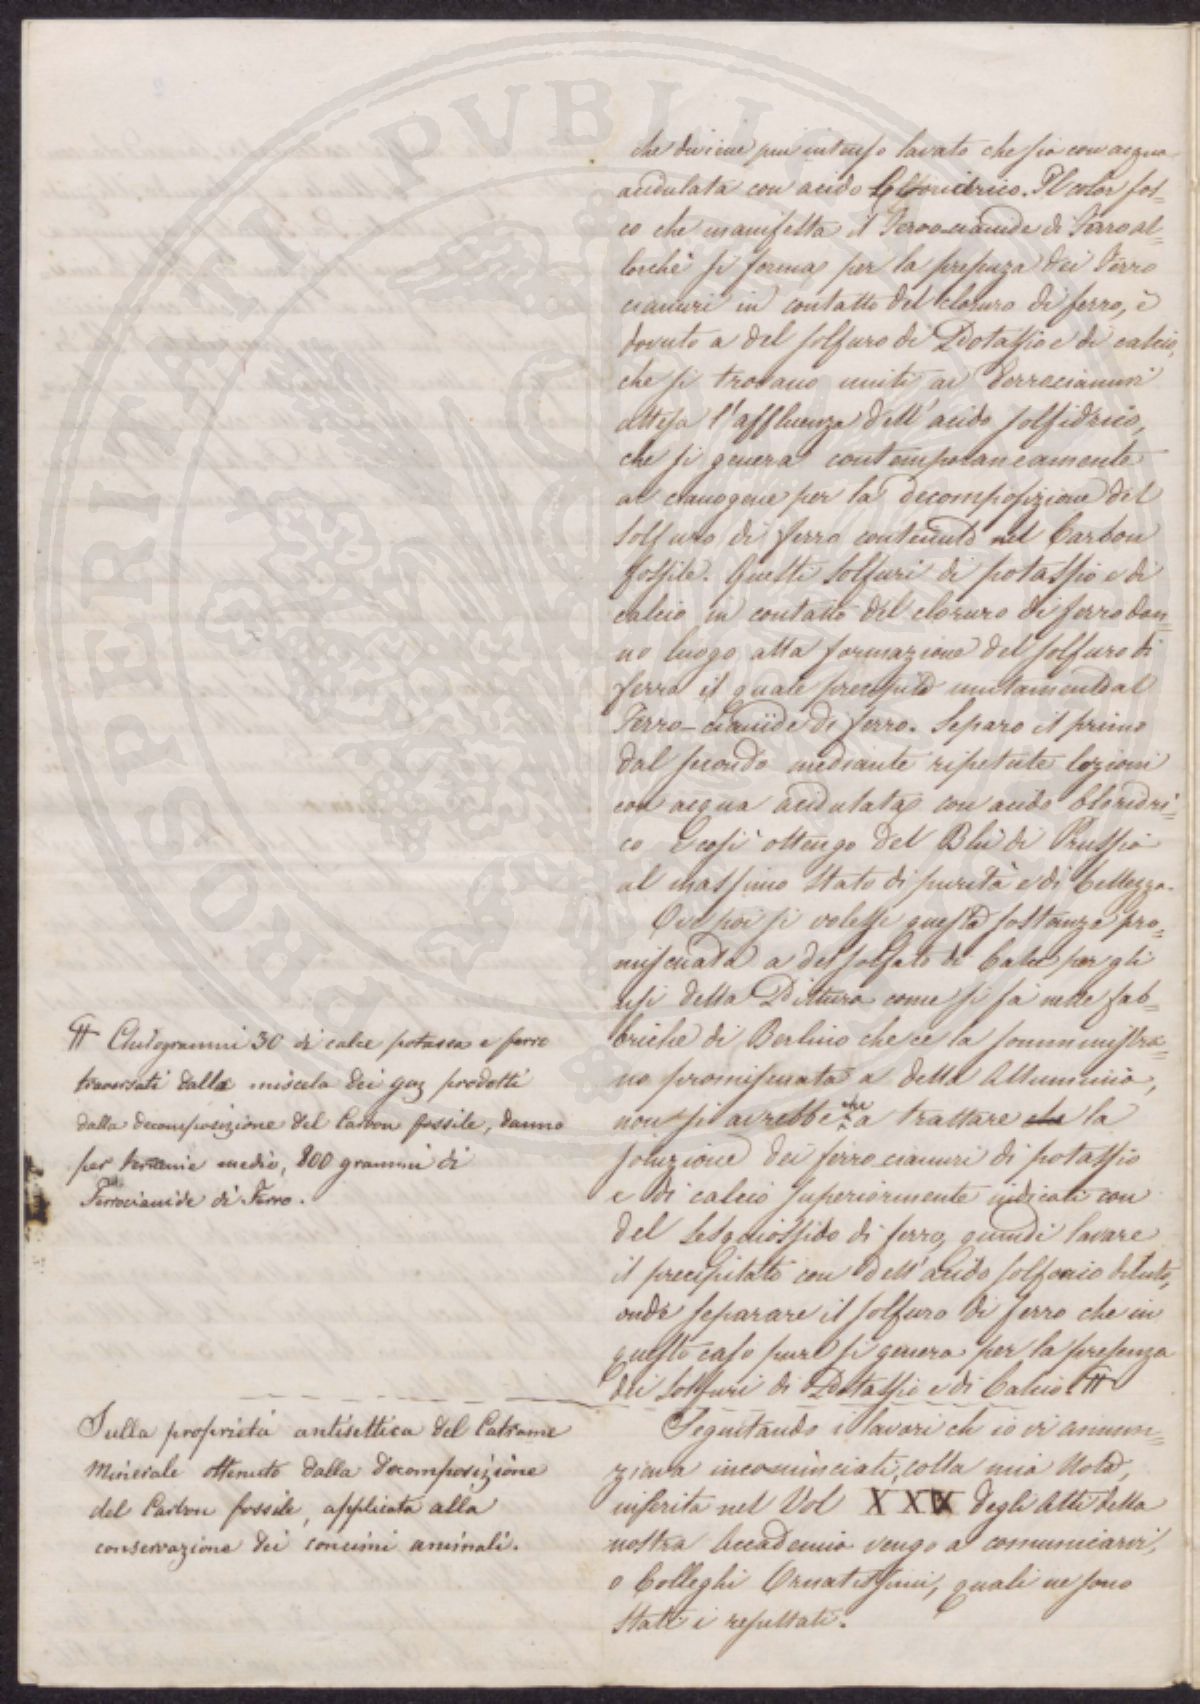 che diviene piu intenso lavato che sia con acqua
acidulata con acido Cloroidrico. Il color fos=
co che manifesta il Ferro-cianide di Ferro al=
lorchè si forma per la presenza dei Ferro
cianuri in contatto del cloruro di ferro, è
dovuto a del solfuro di Potassio e di calcio,
che si trovano uniti ai Ferrocianuri
attesa l'affluenza dell'acido solfidrico,
che si genera contemporaneamente
al cianogene per la decomposizione del
solfuro di ferro contenuto nel Carbon
fossile. Questi solfuri di potassio e di
calcio in contatto del cloruro di ferro dan=
no luogo alla formazione del solfuro di
ferro il quale precipita unitamente al
Ferro-cianide di ferro. Separo il primo
dal secondo mediante ripetute lozioni
con acqua acidulata con acido Cloridri=
co E così ottengo del Blù di Prussia
al massimo stato di purità e di bellezza.
Ove poi si volesse questa sostanza pro=
miscuata a del solfato di Calce per gli
usi della Pittura come si fà nelle fab=
briche di Berlino che ce la somministra=
no promiscuata a della Allumina,
non si avrebbe che a trattare che la
soluzione dei ferro cianuri di potassio
e di calcio superiormente indicati con
del sesquiossido di ferro, quindi lavare
il precipitato con dell'acido solforico diluto,
onde separare il solfuro di ferro che in
questo caso pure si genera per la presenza
dei solfuri di Potassio e di Calcio. #
Seguitando i lavori ch'io vi annun=
ziava incominciati, colla mia Nota,
inserita nel Vol XXV degli Atti della
nostra Accademia vengo a comunicarvi,
o Colleghi Ornatissimi, quali ne sono
stati i resultati.
# Chilogrammi 30 di calce potassa e ferro
traversati dalla miscela dei gaz prodotti
dalla decomposizione del Carbon fossile, danno
per termine medio, 800 grammi di
Ferrocianide di Ferro.
Sulla proprietà antisettica del Catrame
Minerale ottenuto dalla decomposizione
del Carbon fossile, applicata alla
conservazione dei concimi animali.
PROSPERITATI PVBLICAE